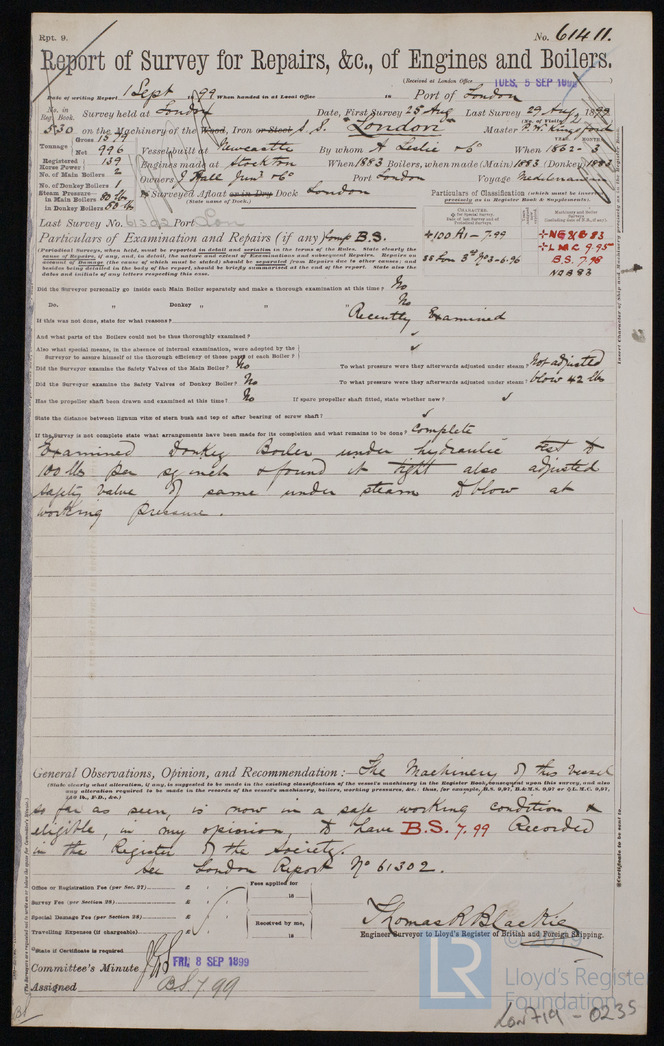 Rpt. 9.
No. 61411.
Report of Survey for Repairs, &c., of Engines and Boilers.
(Received at London Office TUES. 5 SEP 1899 )
Date of writing Report 1 Sept 99 When handed in at Local Office 18 Port of London
No. in Reg. Book. 530 Survey held at London Date, First Survey 25 Aug Last Survey 29 Aug 1899
(No. of Visits 2 )
on the Machinery of the Wood, Iron or Steel S.S. "London" Master P.W. Kingsford
Tonnage Gross Net 996 Vessel built at Newcastle By whom A Leslie & Co When 1862 - 3
Registered Horse Power 139 Engines made at Stockton When 1883 Boilers, when made (Main) 1883 (Donkey) 1883
No. of Main Boilers 2
No. of Donkey Boilers 1 Owners J Hall Junr & Co Port London Voyage Mediterranean
Steam Pressure in Main Boilers 80 lbs
in Donkey Boilers 50 lbs
If Surveyed Afloat or in Dry Dock London
(State name of Dock.)
Particulars of Classification (which must be inserted precisely as in Register Book & Supplements).
Last Survey No. 61302 Port Lon
Particulars of Examination and Repairs (if any) B.S.
CHARACTER.
+100 A1 - 7.99
SS Lon 3rd No3-6.96
+NE&B 83
+L M C 9.95
B.S. 7.98
NDB 83
(Periodical Surveys, when held, must be reported in detail and seriatim in the terms of the Rules. State clearly the cause of Repairs, if any, and, in detail, the nature and extent of Examinations and subsequent Repairs. Repairs on account of Damage (the cause of which must be stated) should be separated from Repairs due to other causes; and besides being detailed in the body of the report, should be briefly summarised at the end of the report. State also the dates and initials of any letters respecting this case.
Did the Surveyor personally go inside each Main Boiler separately and make a thorough examination at this time? No
Do. " Donkey " " " No
If this was not done, state for what reasons? Recently Examined
And what parts of the Boilers could not be thus thoroughly examined? ✓
Also what special means, in the absence of internal examination, were adopted by the Surveyor to assure himself of the thorough efficiency of those parts of each Boiler? ✓
Did the Surveyor examine the Safety Valves of the Main Boiler? No To what pressure were they afterwards adjusted under steam? Not adjusted
Did the Surveyor examine the Safety Valves of Donkey Boiler? No To what pressure were they afterwards adjusted under steam? blow 42 lbs
Has the propeller shaft been drawn and examined at this time? No If spare propeller shaft fitted, state whether new? ✓
State the distance between lignum vitæ of stern bush and top of after bearing of screw shaft? ✓
If the Survey is not complete state what arrangements have been made for its completion and what remains to be done? Complete
Examined Donkey Boiler under hydraulic test to
100 lbs per sq inch & found it tight also adjusted
safety valve of same under steam to blow at
working pressure.
General Observations, Opinion, and Recommendation:— The Machinery of this Vessel
(State clearly what alteration, if any, is suggested to be made in the existing classification of the vessel's machinery in the Register Book, consequent upon this survey, and also any alteration required to be made in the records of the vessel's machinery, boilers, working pressures, &c.: thus, for example, B.S. 9,97, B.&M.S. 9,97 or L.M.C. 9,97, 140 lb., F.D., &c.)
so far as seen, is now in a safe working condition &
eligible, in my opinion, to have B.S. 7.99 Recorded
in the Register of the Society.
See London Report No 61302.
Office or Registration Fee (per Sec. 27) £ Fees applied for
Survey Fee (per Section 28) £ 18
Special Damage Fee (per Section 28) £ Received by me,
Travelling Expenses (if chargeable) £ 18
Thomas R Blackie
Engineer Surveyor to Lloyd's Register of British and Foreign Shipping.
State if Certificate is required
Committee's Minute FRI, 8 SEP 1899
Assigned BS 7.99
© 2019
LR
Lloyd's Register
Foundation
LON719 - 0235